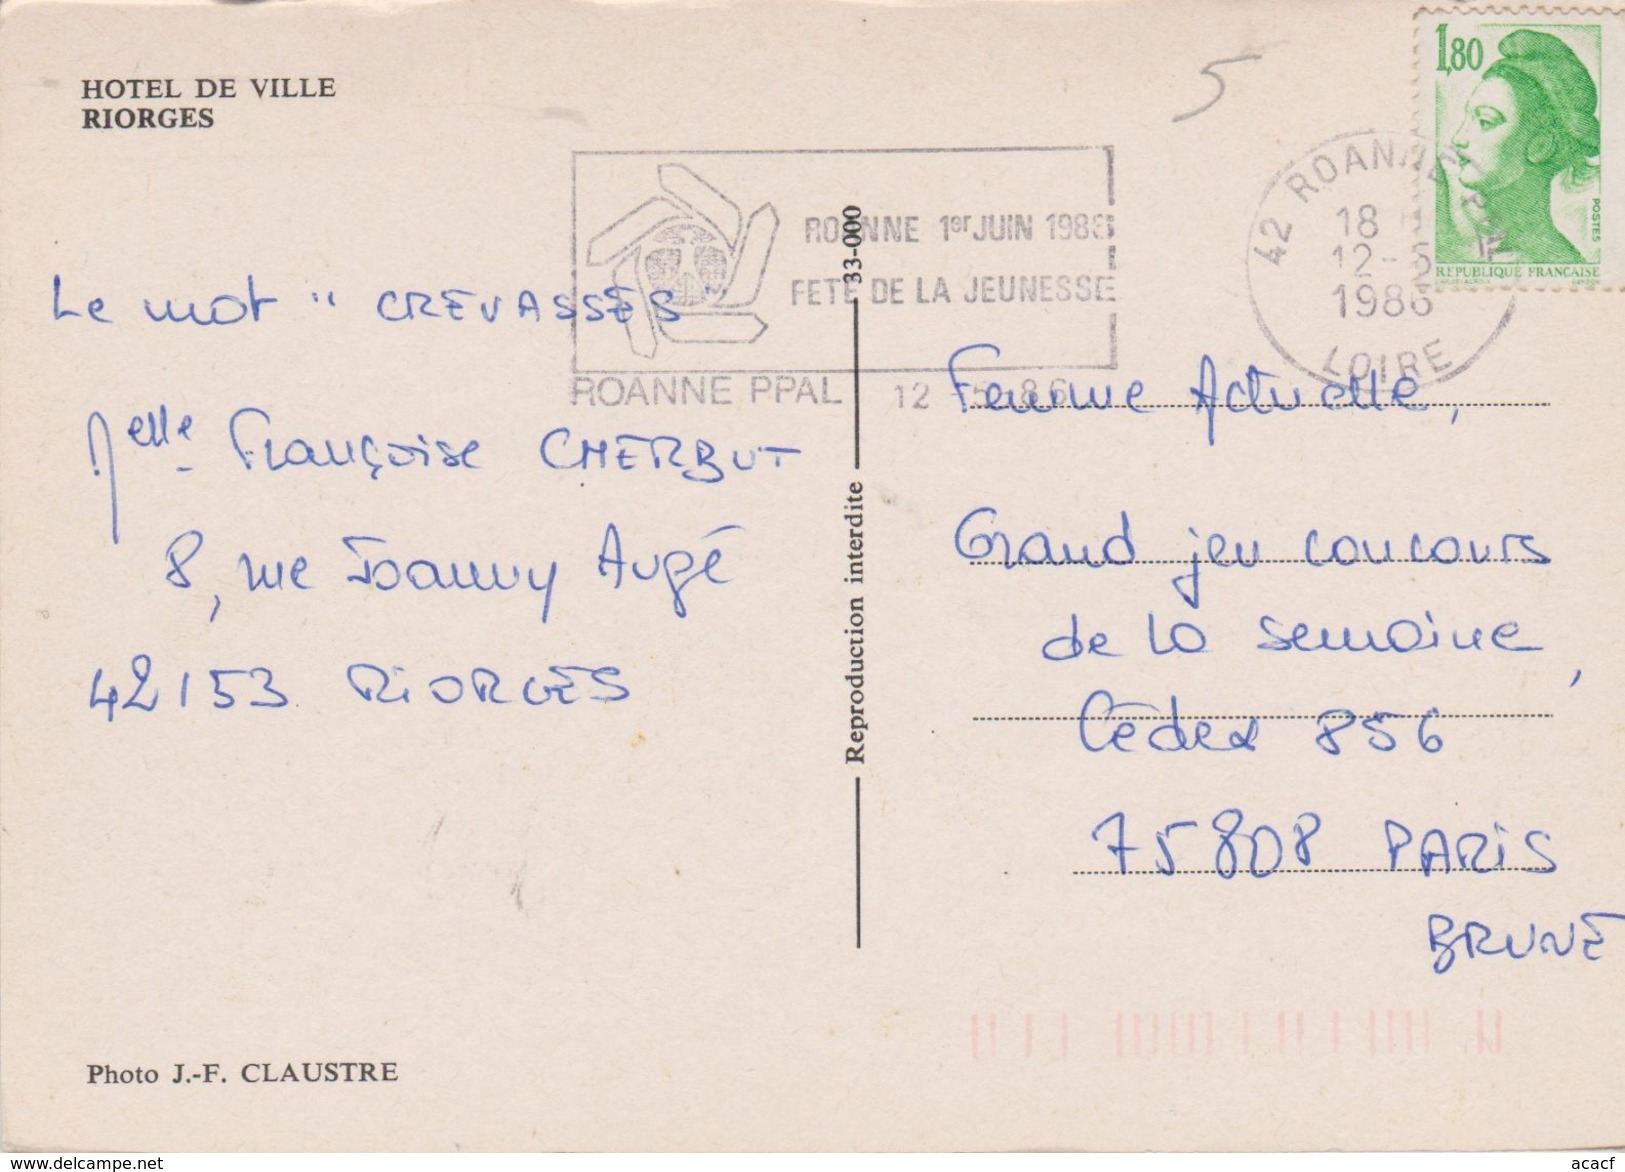 HOTEL DE VILLE
RIORGES
5
1,80
POSTES
REPUBLIQUE FRANÇAISE
42 ROANNE PPAL
18 H
12-5
1986
LOIRE
ROANNE 1er JUIN 1986
FETE DE LA JEUNESSE
ROANNE PPAL 12 5 86
Le mot " CREVASSES "
Melle Françoise CHERBUT
8, rue Joanny Augé
42153 RIORGES
33-000
Reproduction interdite
Femme Actuelle,
Grand jeu concours
de la semaine,
Cédex 856
75808 PARIS
BRUNE
Photo J.-F. CLAUSTRE
delcampe.net
acacf